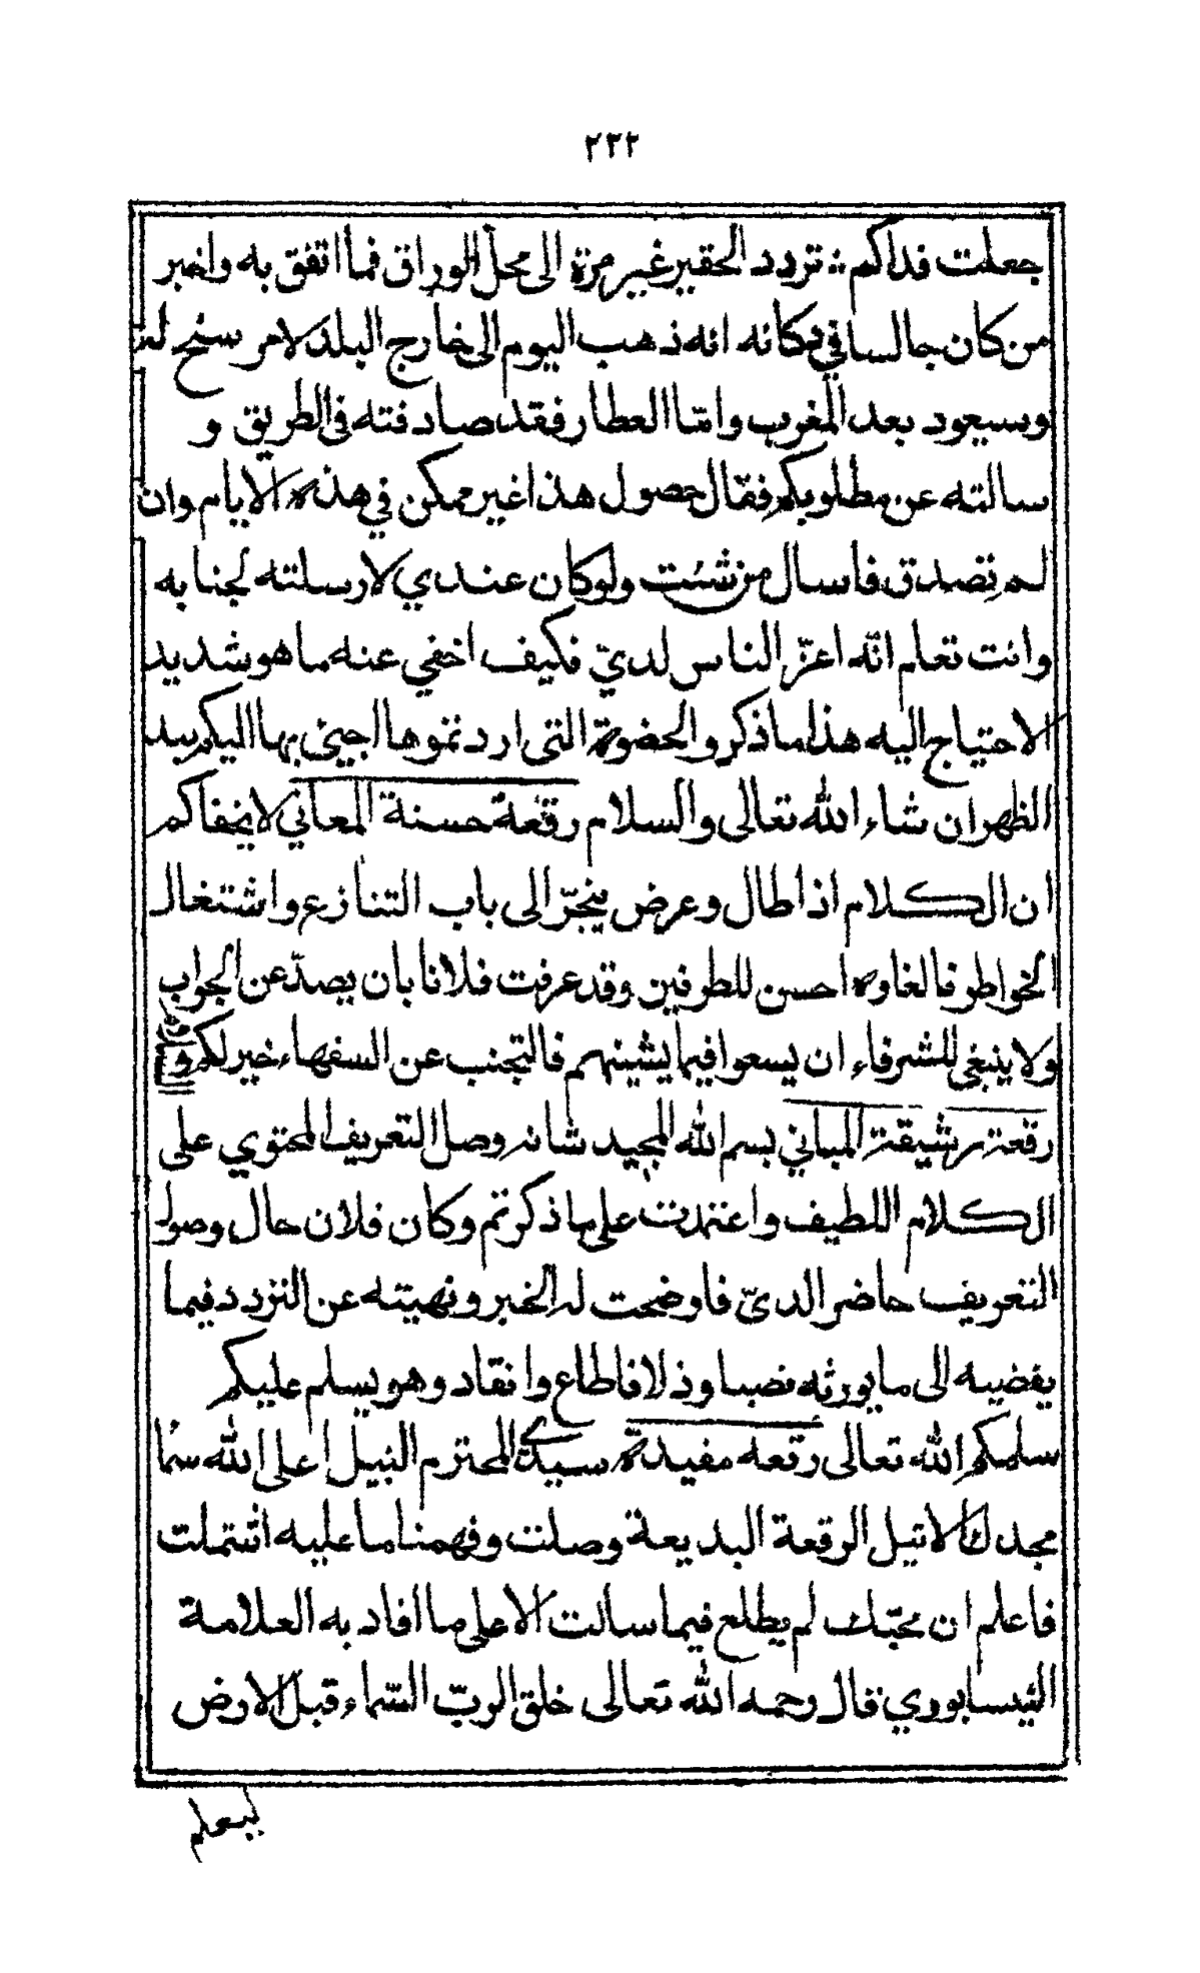 ٢٣٢
جعلت فداكم ؞ تردد الحقير غير مرة الى محل الوراق فما اتفق به واخبر
من كان جالسا في دكانه انه ذهب اليوم الى خارج البلد لامر سنح له
وسيعود بعد المغرب وامّا العطار فقد صادفته في الطريق و
سالته عن مطلوبكم فقال حصول هذا غير ممكن في هذه الايام وان
لم تصدق فاسال من شئت ولو كان عندي لارسلته لجنابه
وانت تعلم انّه اعزّ الناس لديّ فكيف اخفي عنه ما هو شديد
الاحتياج اليه هذا ما ذكر والحضوة التي اردتموها اجيئ بها اليكم بعد
الظهر ان شاء الله تعالى والسلام رقعة حسنة المعاني لا يخفاكم
ان الكلام اذا طال وعرض ينجرّ الى باب التنازع واشتغال
الخواطر فالغاوه احسن للطرفين وقد عرفت فلانا بان يصدّ عن الجواب
ولا ينبغي للشرفاء ان يسعوا فيما يشينهم فالتجنب عن السفهاء خير لكم و
رقعة رشيقة المباني بسم الله المجيد شانه وصل التعريف المحتوي على
الكلام اللطيف واعتمدت على ما ذكرتم وكان فلان حال وصول
التعريف حاضرا لديّ فاوضحت له الخبر ونهيته عن التردد فيما
يفضيه الى ما يورثه نصبا وذلا فاطاع وانقاد وهو يسلم عليكم
سلمكم الله تعالى رقعه مفيدة سيدي المحترم النبيل اعلى الله سما
مجدك الاثيل الرقعة البديعة وصلت وفهمنا ما عليه اشتملت
فاعلم ان محبّك لم يطلع فيما سالت الا على ما افاد به العلامة
النيسابوري قال رحمه الله تعالى خلق الربّ السّماء قبل الارض
ليعلم